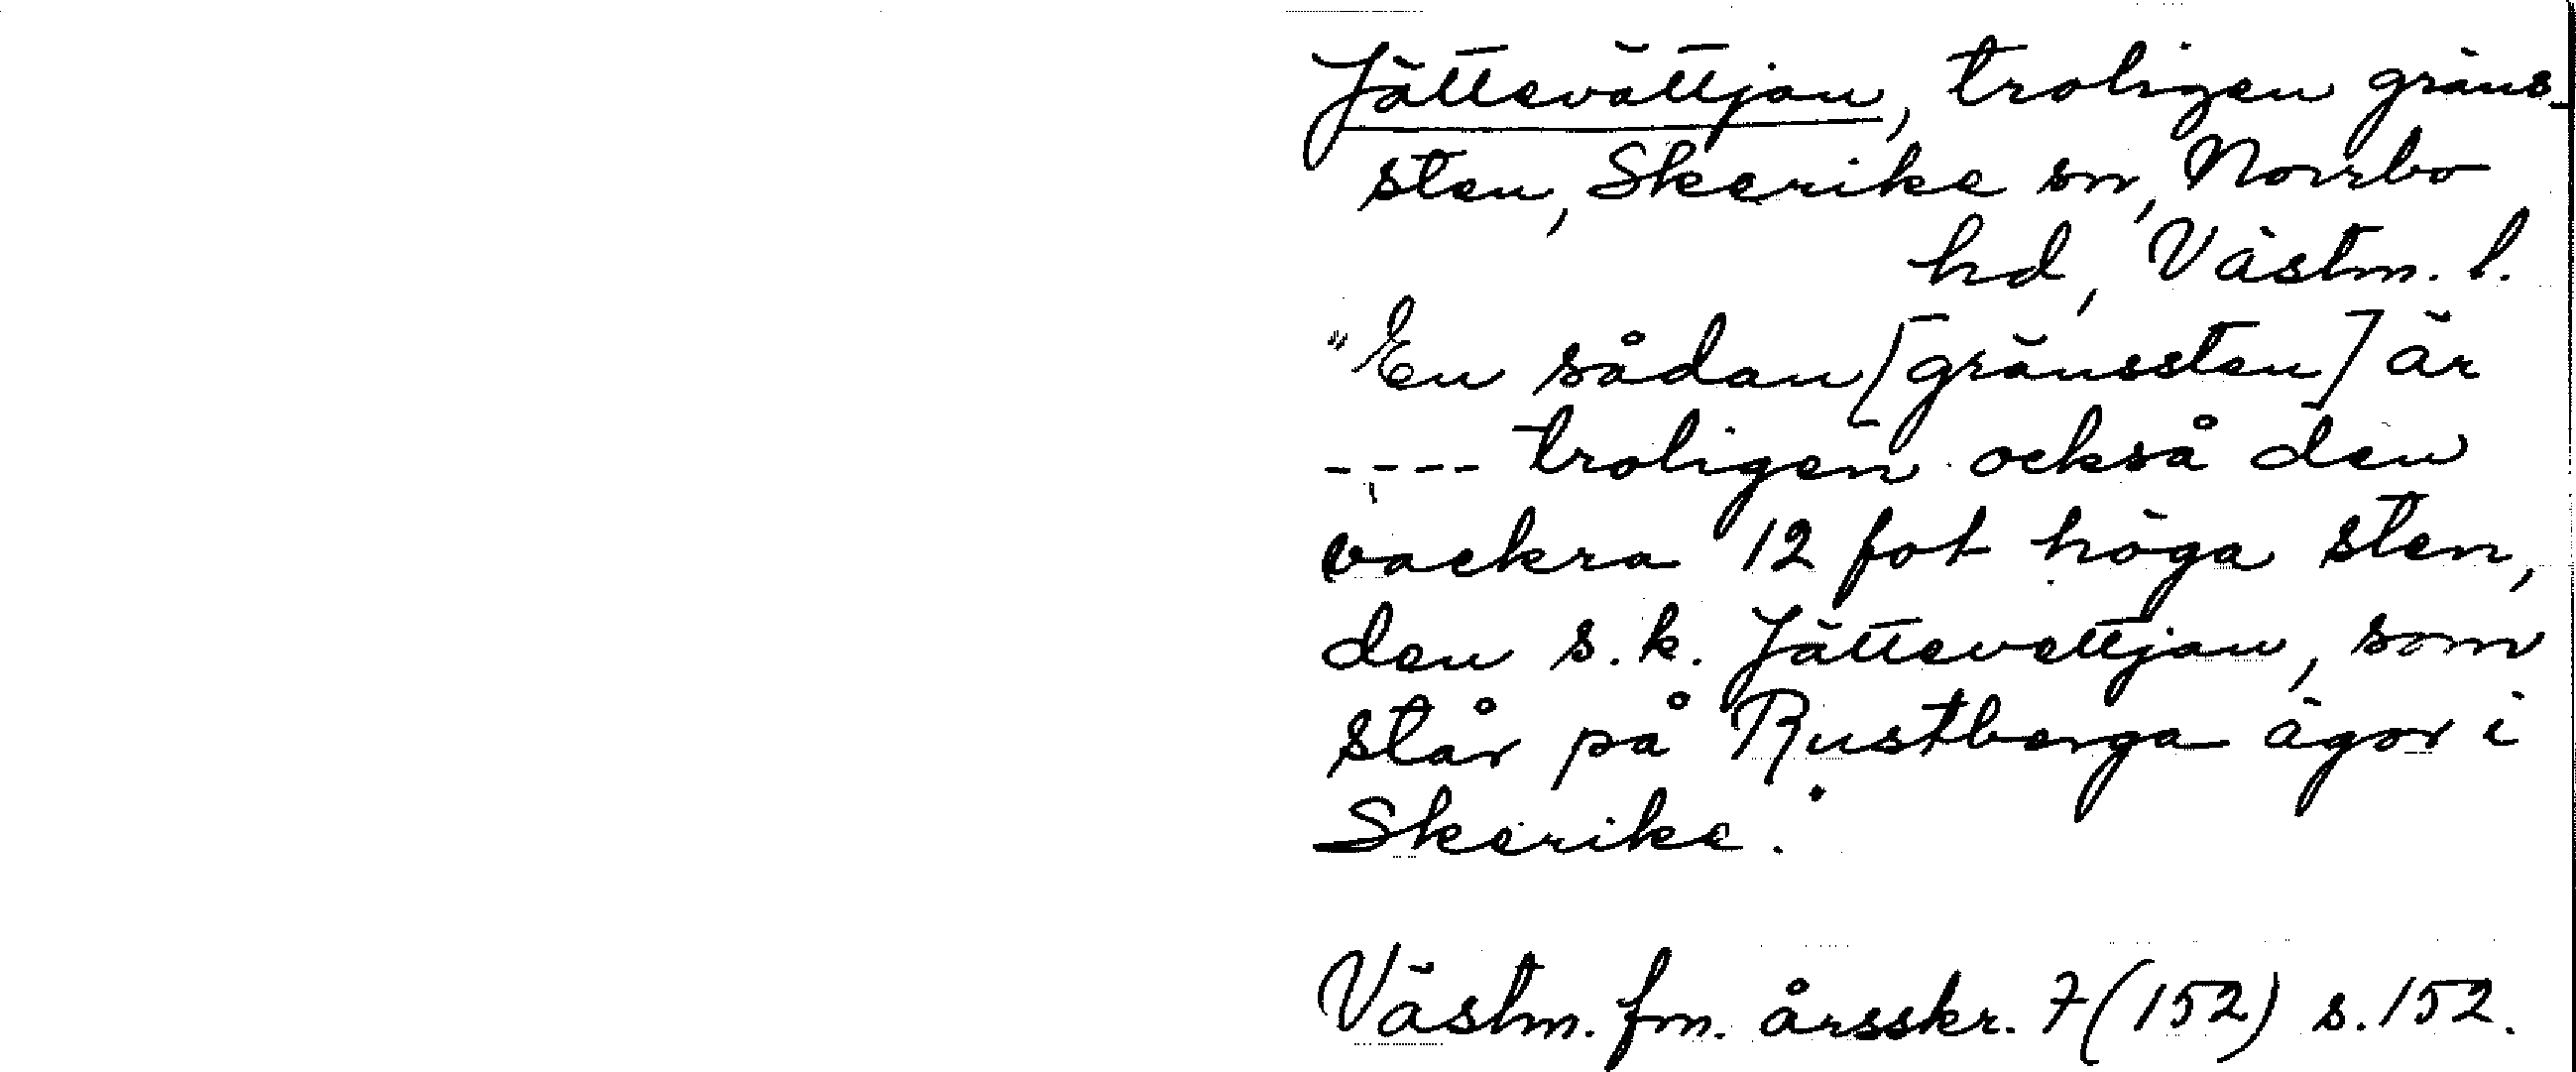 Jättevättjan, troligen gräns-
sten, Skerike sn, Norrbo
hd, Västm. l.
"En sådan [gränssten] är
---- troligen också den
vackra 12 fot höga sten,
den s.k. Jättevettjan, som
står på Rustberga ägor i
Skerike."
Västm. fm. årsskr. 7 (152) s. 152.